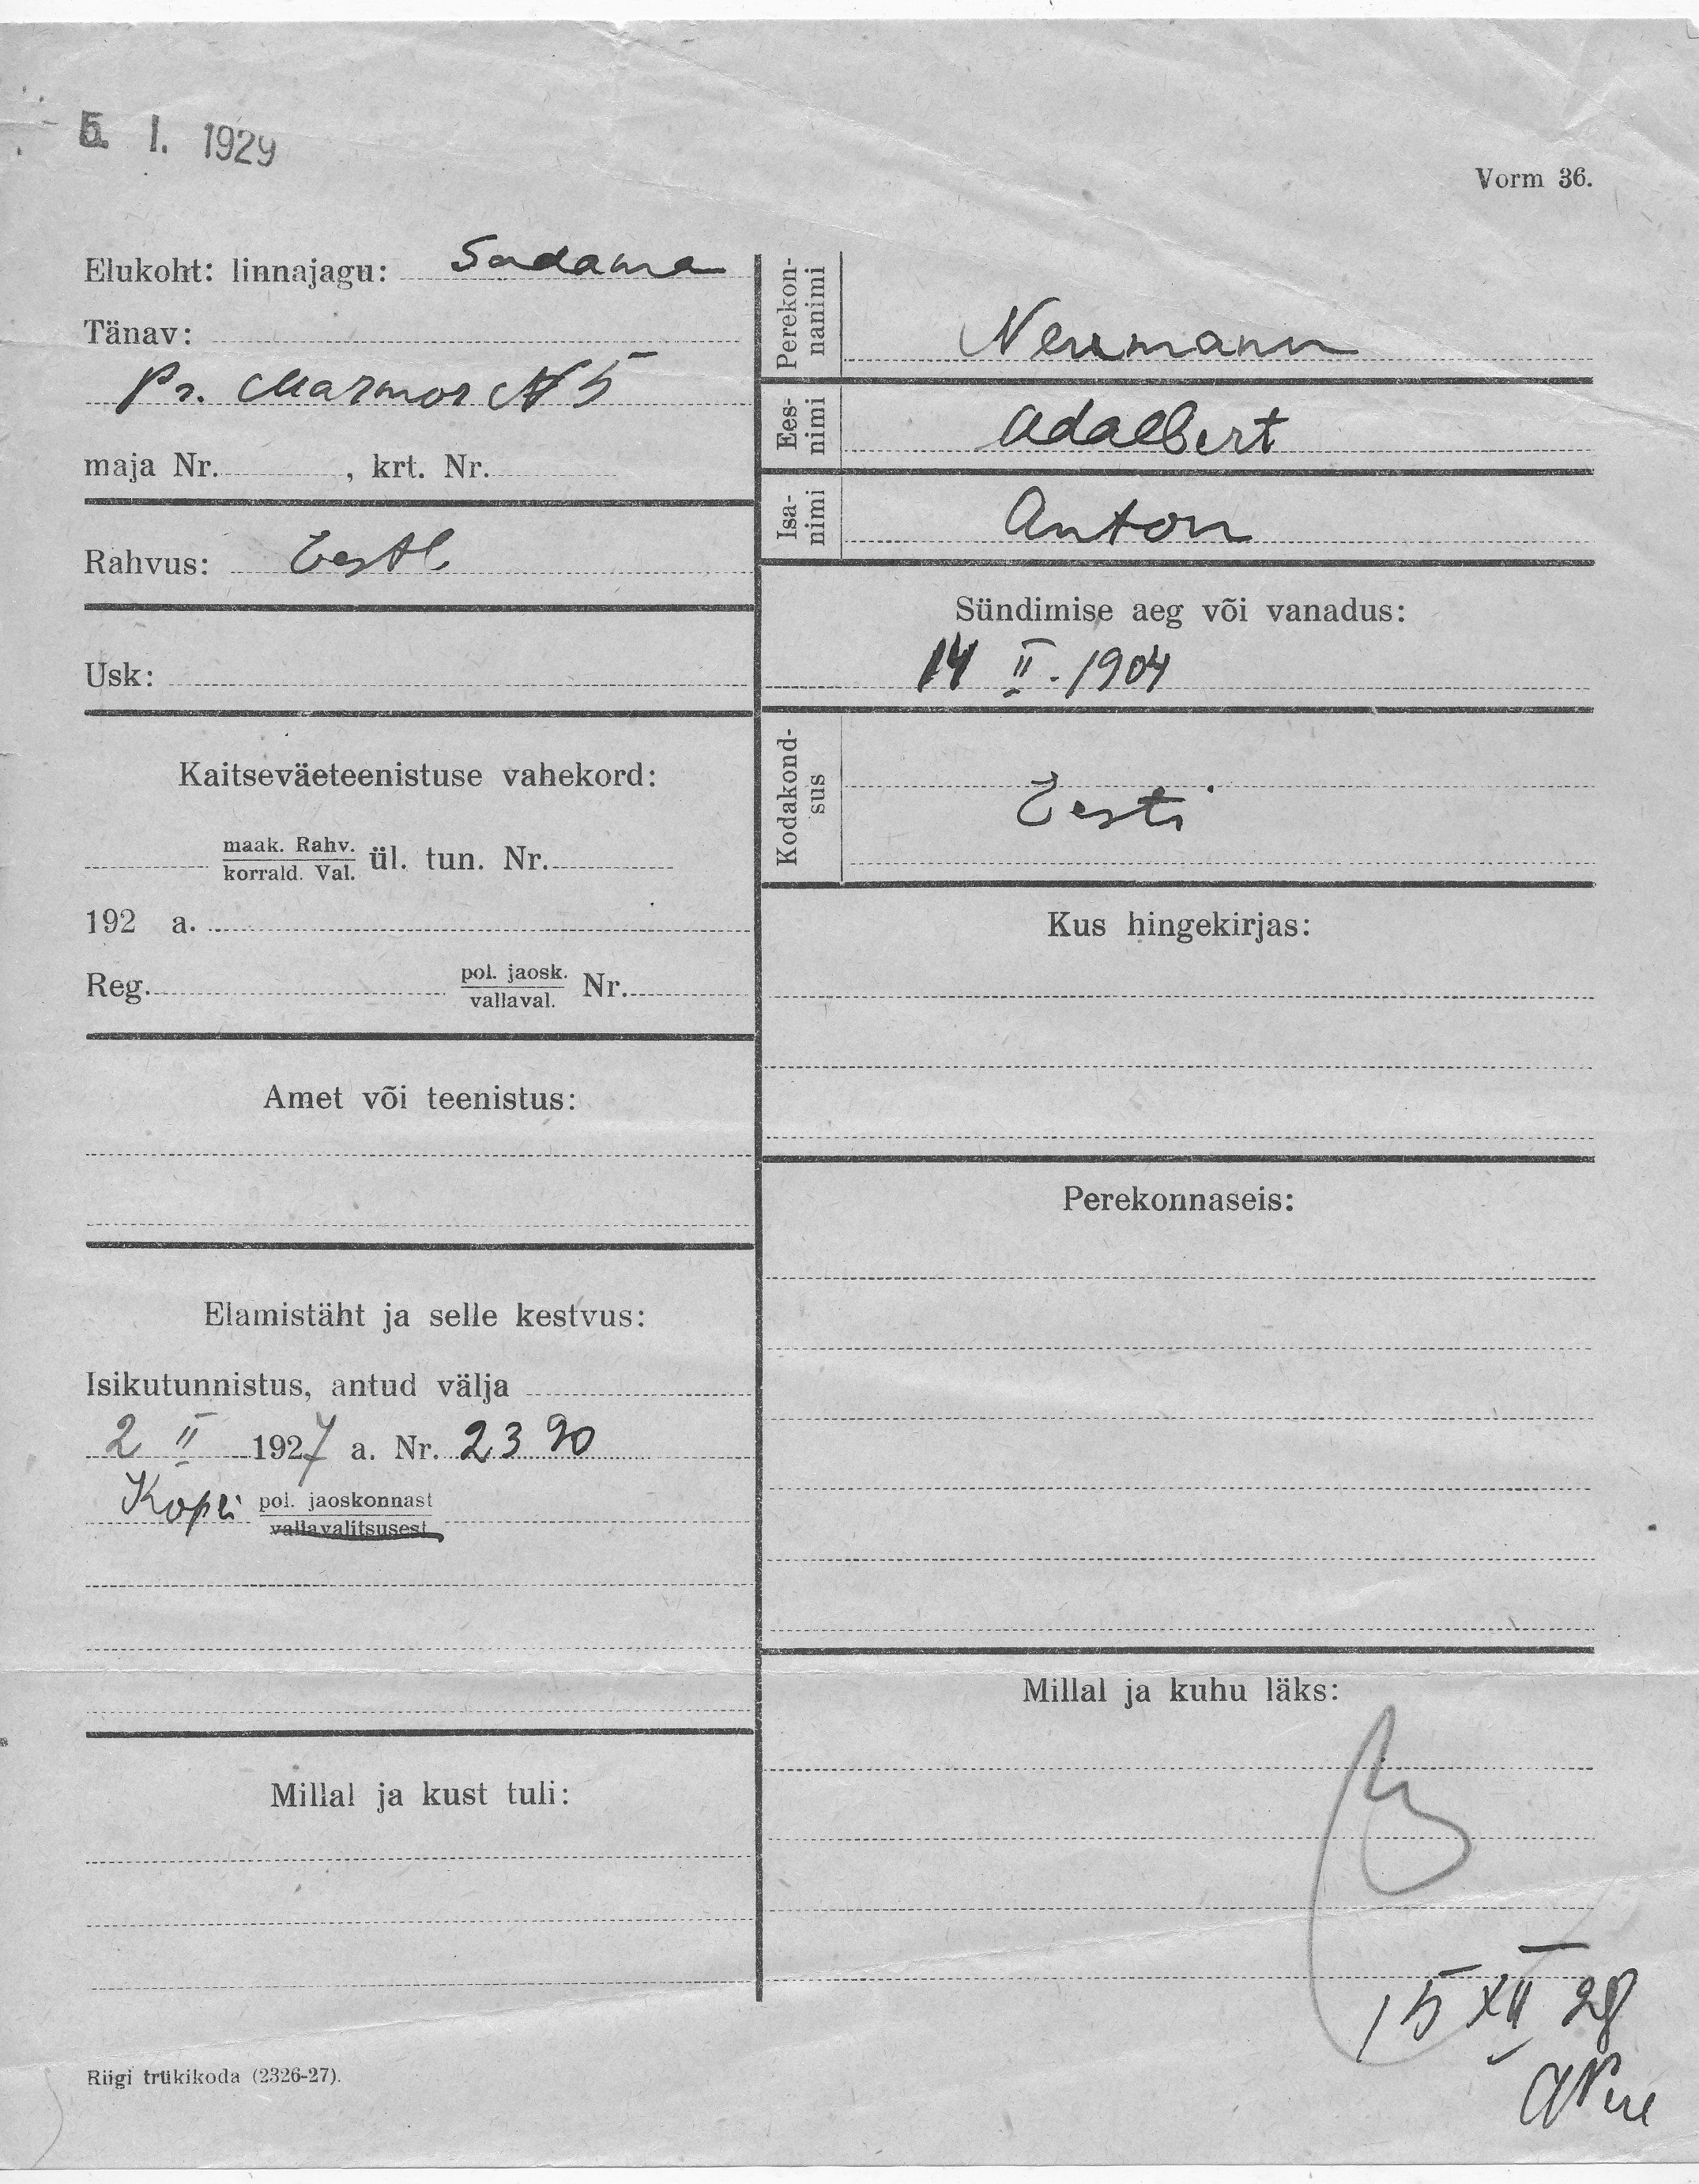 5. I. 1929
Vorm 36.
Elukoht: linnajagu: Sadama
Tänav:
Pr. Marmor № 5
maja Nr. , krt. Nr.
Rahvus: Eestl.
Usk:
Kaitseväeteenistuse vahekord:
maak. Rahv.
korrald. Val. ül. tun. Nr.
192 a.
Reg. pol. jaosk. Nr.
vallaval.
Amet või teenistus:
Elamistäht ja selle kestvus:
Isikutunnistus, antud välja
2 II 1927 a. Nr. 2390
Kopli pol. jaoskonnast
vallavalitsusest
Millal ja kust tuli:
Perekon-
nanimi
Neumann
Ees-
nimi
Adalbert
Isa-
nimi
Anton
Sündimise aeg või vanadus:
14 II. 1904
Kodakond-
sus
Eesti
Kus hingekirjas:
Perekonnaseis:
Millal ja kuhu läks:
15 XII 28
Riigi trükikoda (2326-27).